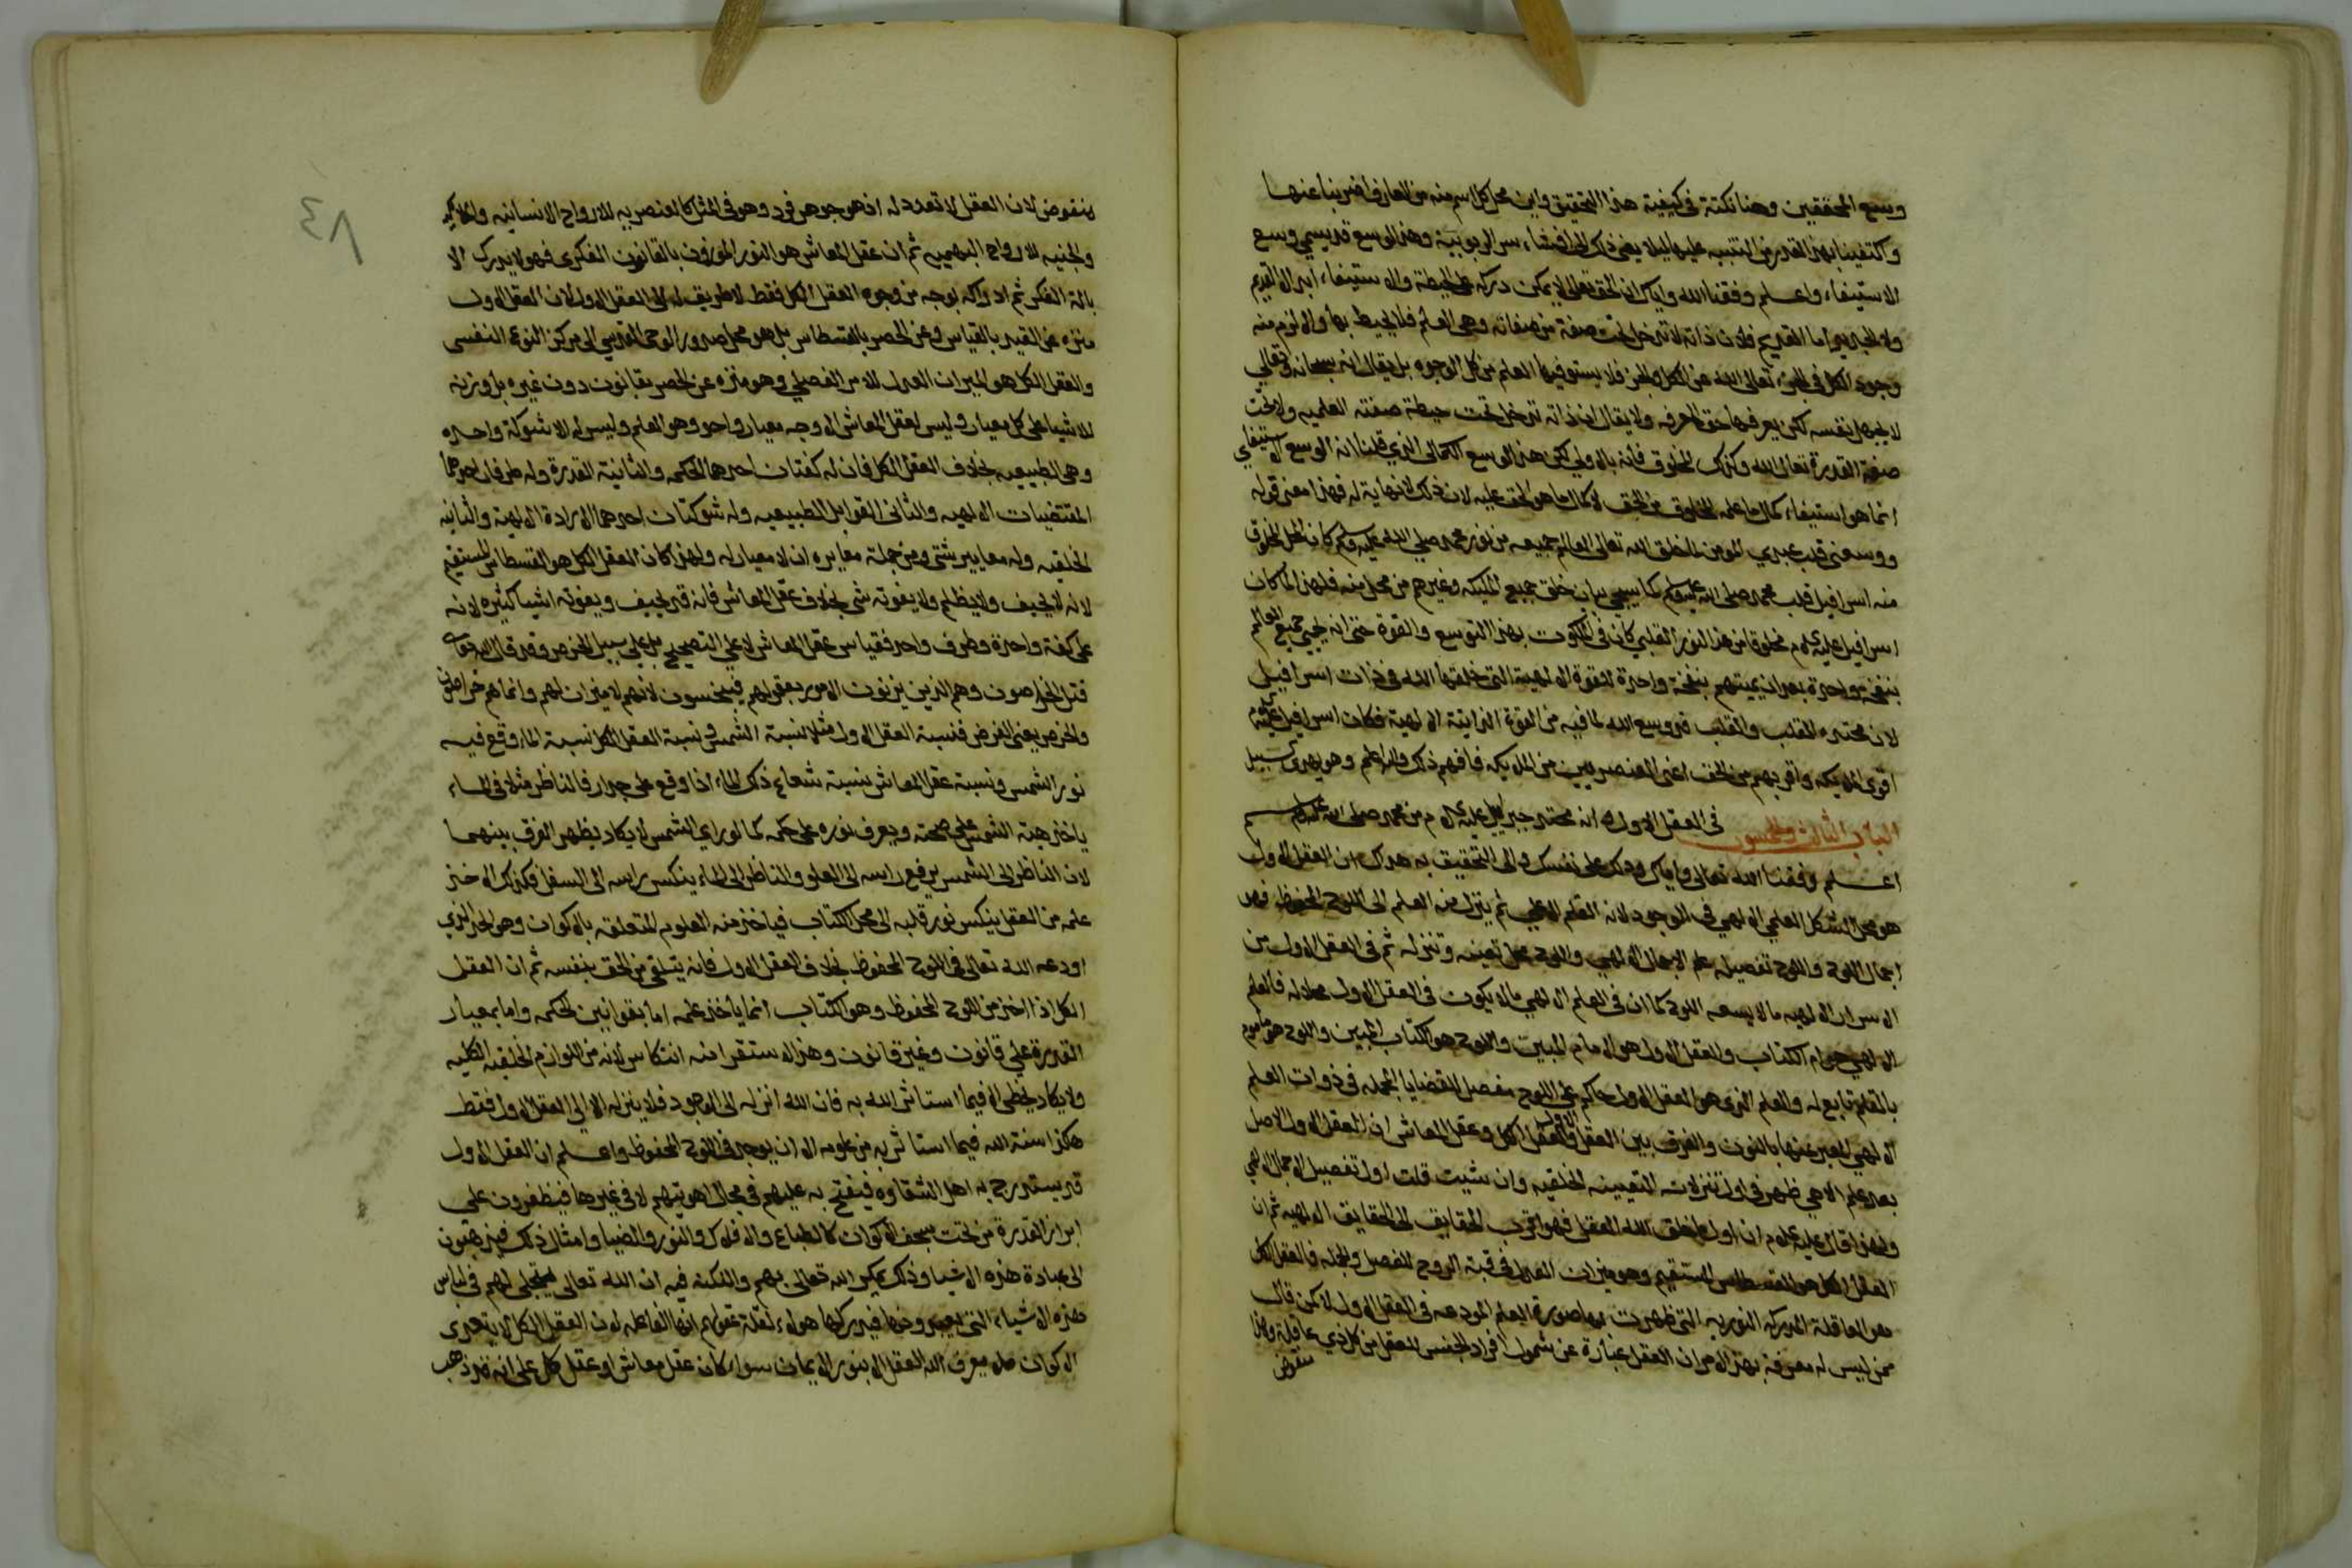 وسع المحققين وهنا نكتة في كيفية هذا التحقيق واين محل كل اسم منه من المعارف اضربنا عنها
واكتفينا بهذا القدر من التنبيه عليها ليلا يفضي ذلك الى افشاء سر الربوبية وهذا الوسع قد يسمى وسع
الاستيفاء واعلم وفقنا الله واياك ان الحق تعالى لا يمكن دركه على الحيطة والاستيفاء ابدا لا القديم
ولا لحديث اما القديم فلان ذاته لا تدخل تحت صفة من صفاته وهي العلم فلا يحيط بها والا لزم منه
وجود الكل في الجزء تعالى الله عن الكل والجزء فلا يستوفيها العلم من كل الوجوه بل يقال انه سبحانه وتعالى
لا يجهل نفسه لكن يعرفها حق المعرفه ولا يقال ان ذاته تدخل تحت حيطة صفته العلميه ولا تحت
صفة القدرة تعالى الله وكذلك المخلوق فانه بالاولى لكن هذا الوسع الكمالي الذي قلنا انه الوسع الاستيفاي
انما هو استيفاء كمال ما علمه المخلوق من الحق لا كمال ما هو الحق عليه لان ذلك لا نهاية له فهذا معنى قوله
ووسعني قلب عبدي المومن لما خلق الله تعالى العالم جميعه من نور محمد صلى الله عليه وسلم كان المحل المخلوق
منه اسرافيل قلب محمد صلى الله عليه وسلم كما سيجي بيان خلق جميع المليكه وغيرهم من محل منه فلهذا لما كان
اسرافيل عليه السلام مخلوقا من هذا النور القلبي كان في الملكوت بهذا التوسع والقوة حتى انه يحيى جميع العالم
بنفخة واحدة بعد ان يميتهم بنفخة واحدة للقوة الالهية التي خلقها الله في ذات اسرافيل
لان محتده القلب والقلب قد وسع الله لما فيه من القوة الذاتية الالهية فكان اسرافيل عليه السلام
اقوى الملايكه واقربهم من الحق اعني العنصريين من الملايكه فافهم ذلك والله اعلم وهو يهدي السبيل
الباب الثالث والخمسون في العقل الاول وانه محتد جبرايل عليه السلام من محمد صلى الله عليه وسلم
اعلم وفقنا الله تعالى واياك ودلك على نفسك والى التحقيق به هداك ان العقل الاول
هو محل الشكل العلمي الالهي في الوجود لانه القلم الاعلى ثم ينزل منه العلم الى اللوح المحفوظ فهو
اجمال اللوح واللوح تفصيله بل هو تفصيل علم الاجمال الالهي واللوح محل تعينه وتنزله ثم في العقل الاول من
الاسرار الالهيه ما لا يسعه اللوح كما ان في العلم الالهي ما لا يكون في العقل الاول محلا له فالعلم
الالهي هو ام الكتاب والعقل الاول هو الامام المبين واللوح هو الكتاب المبين واللوح هو ماموم
بالقلم تابع له والعلم الذي هو العقل الاول حاكم على اللوح مفصل للقضايا المجمله في ذوات العلم
الالهي المعبر عنها بالنون والفرق بين العقل الاول والعقل الكل وعقل المعاش ان العقل الاول الاصل
بعد علم الاهي ظهر في اول تنزلاته التعيينه الخلقيه وان شيت قلت اول تفصيل الاجمال الالهي
ولهذا قال عليه السلام ان اول ما خلق الله العقل فهو اقرب الحقايق الى الحقايق الالهيه ثم ان
العقل الكل هو القسطاس المستقيم وهو ميزان العدل في قبة الروح للفصل وبالجمله فالعقل الكل
هو العاقلة المدركة النوريه التي ظهرت بها صورة العلم المودعه في العقل الاول لا كمن قال
ممن ليس له معرفة بهذا الامر ان العقل عبارة عن شمول افراد الجنس للعقل من كل ذي عاقلة وهذا
منقوض
منقوض لان العقل لا تعدد له اذ هو جوهر فرد وهو في المثل كالعنصريه للارواح الانسانيه والملكيه
والجنيه لا للارواح البهيميه ثم ان عقل المعاش هو النور الموزون بالقانون الفكري فهو لا يدرك الا
بالة الفكر ثم ادراكه بوجه من وجوه العقل الكل فقط لا طريق له الى العقل الاول لان العقل الاول
منزه عن القيد بالقياس وعن الحصر بالقسطاس بل هو محل صدور الوحي القدسي الى مركز النوع النفسي
والعقل الكل هو الميزان العدل للامر الفصلي وهو منزه عن الحصر بقانون دون غيره بل وزنه
للاشيا على كل معيار وليس لعقل المعاش الا وجه معيار واحد وهو العلم وليس له الا شوكة واحده
وهي الطبيعيه بخلاف العقل الكل فان له كفتان احدهما الحكمه والثانية القدرة وله طرفان احدهما
المقتضيات الالهيه والثاني القوابل الطبيعيه وله شوكتان احدهما الارادة الالهية والثانيه
الخلقيه وله معايير شتى ومن جملة معايره ان لا معيار له ولهذا كان العقل الكل هو القسطاس المستقيم
لانه لا يحيف ولا يظلم ولا يفوته شي بخلاف عقل المعاش فانه قد يحيف ويفوته اشيا كثيره لانه
على كفة واحدة وطرف واحد فقياس عقل المعاش لا على التصحيح بل على سبيل الخرص وقد قال الله تعالى
قتل الخراصون وهم الذين يزنون الامور بعقولهم فيخسون لانهم لا ميزان لهم وانما هم خراصون
والخرص يعني الفرض فنسبة العقل الاول مثلا نسبة الشمس ونسبة العقل الكل نسبة الماء وقع فيه
نور الشمس ونسبة عقل المعاش نسبة شعاع ذلك الماء اذا وقع على جدار فالناظر مثلا في الماء
ياخذ هية الشمس على صحته ويعرف نوره على حكمه كما لو راى الشمس لا يكاد يظهر الفرق بينهما
لان الناظر الى الشمس يرفع راسه الى العلو والناظر الى الماء ينكس راسه الى السفل فكذلك الاخذ
علمه من العقل ينكس نور قلبه الى محل الكتاب فياخذ منه العلوم المتعلقه بالاكوان وهو الحد الذي
اودعه الله تعالى في اللوح المحفوظ بخلاف العقل الاول فانه يتلقى من الحق بنفسه ثم ان العقل
الكل اذا اخذ من اللوح المحفوظ وهو الكتاب انما ياخذ علمه اما بقوانين الحكمه واما بمعيار
القدرة على قانون وغير قانون وهذا الاستقرا منه انتكاس لانه من اللوازم الخلقيه الكليه
ولا يكاد يخطى الا فيما استاثر الله به فان الله انزله الى الوجود فلا ينزله الا الى العقل الاول فقط
هكذا سنة الله فيما استاثر به من علومه الا ان يوجد في اللوح المحفوظ واعلم ان العقل الاول
قد يستدرج به اهل الشقاوه فيفتح به عليهم في مجال اهويتهم لا في غيرها فيظفرون على
اسرار القدرة من تحت سجف الاكوان كالطباع والافلاك والنور والضيا وامثال ذلك فيذهبون
الى عبادة هذه الاشيا وذلك بمكر الله تعالى بهم والنكته فيه ان الله تعالى يتجلى لهم في لباس
هذه الاشياء التي يعبدونها فيدركها هولاء لقلة عقولهم انها الفاعله لان العقل الكل لا يتعدى
الاكوان فلا يعرف الله العقل الا بنور الايمان سواء كان عقل معاش او عقل كل على انه قد ذهب
٨٤